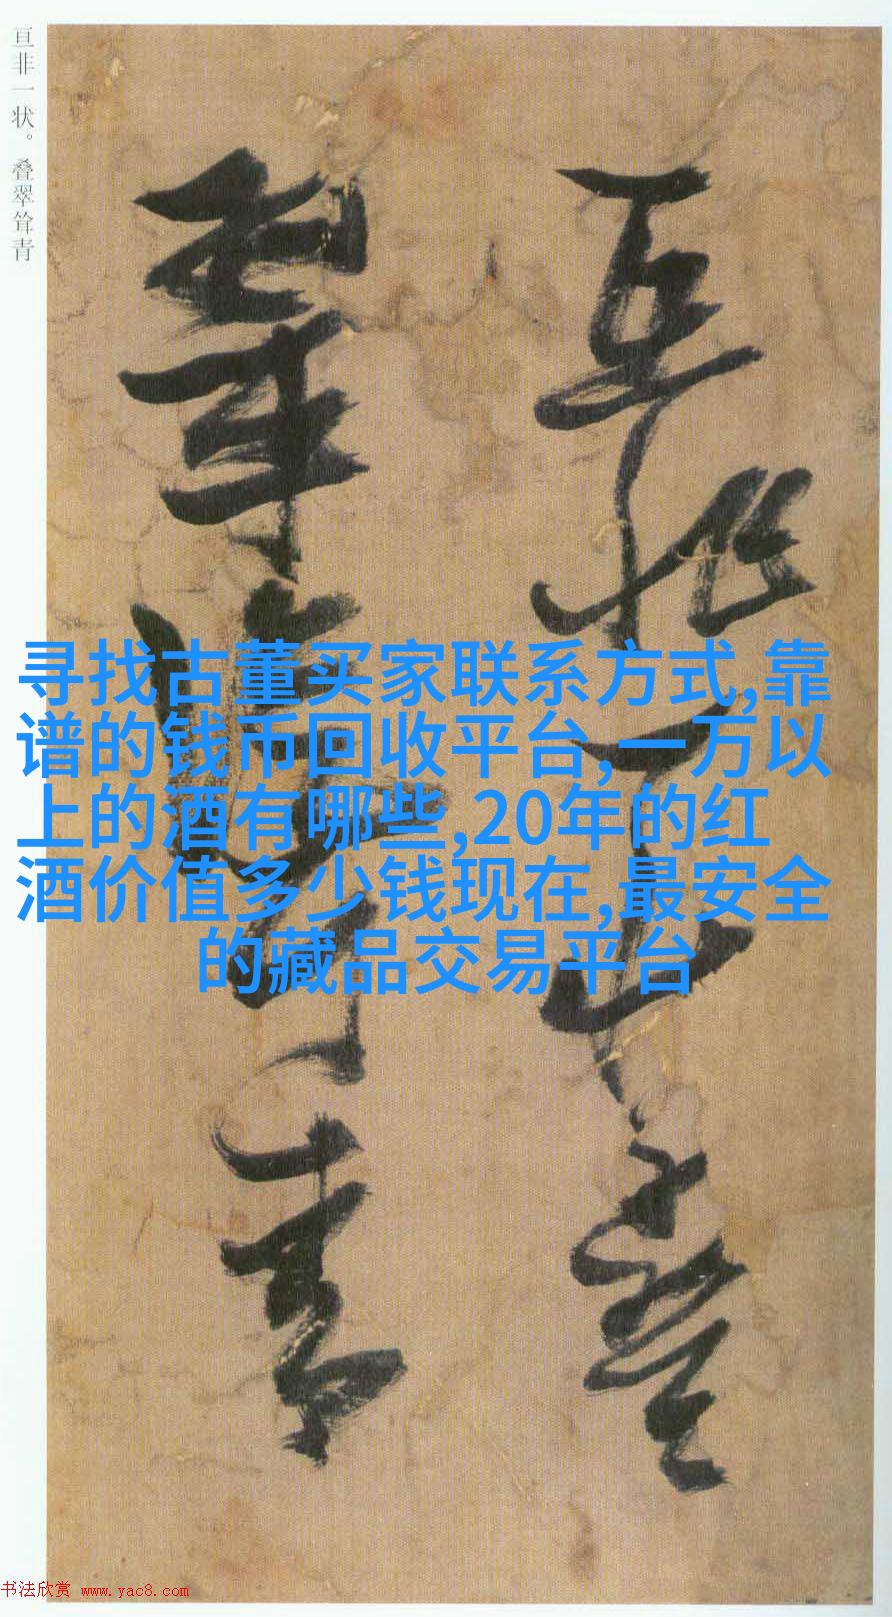 亘非一状。叠翠耸青
寻找古董买家联系方式,靠
谱的钱币回收平台,一万以
上的酒有哪些,20年的红
酒价值多少钱现在,最安全
的藏品交易平台
书法欣赏 www.yac8.com